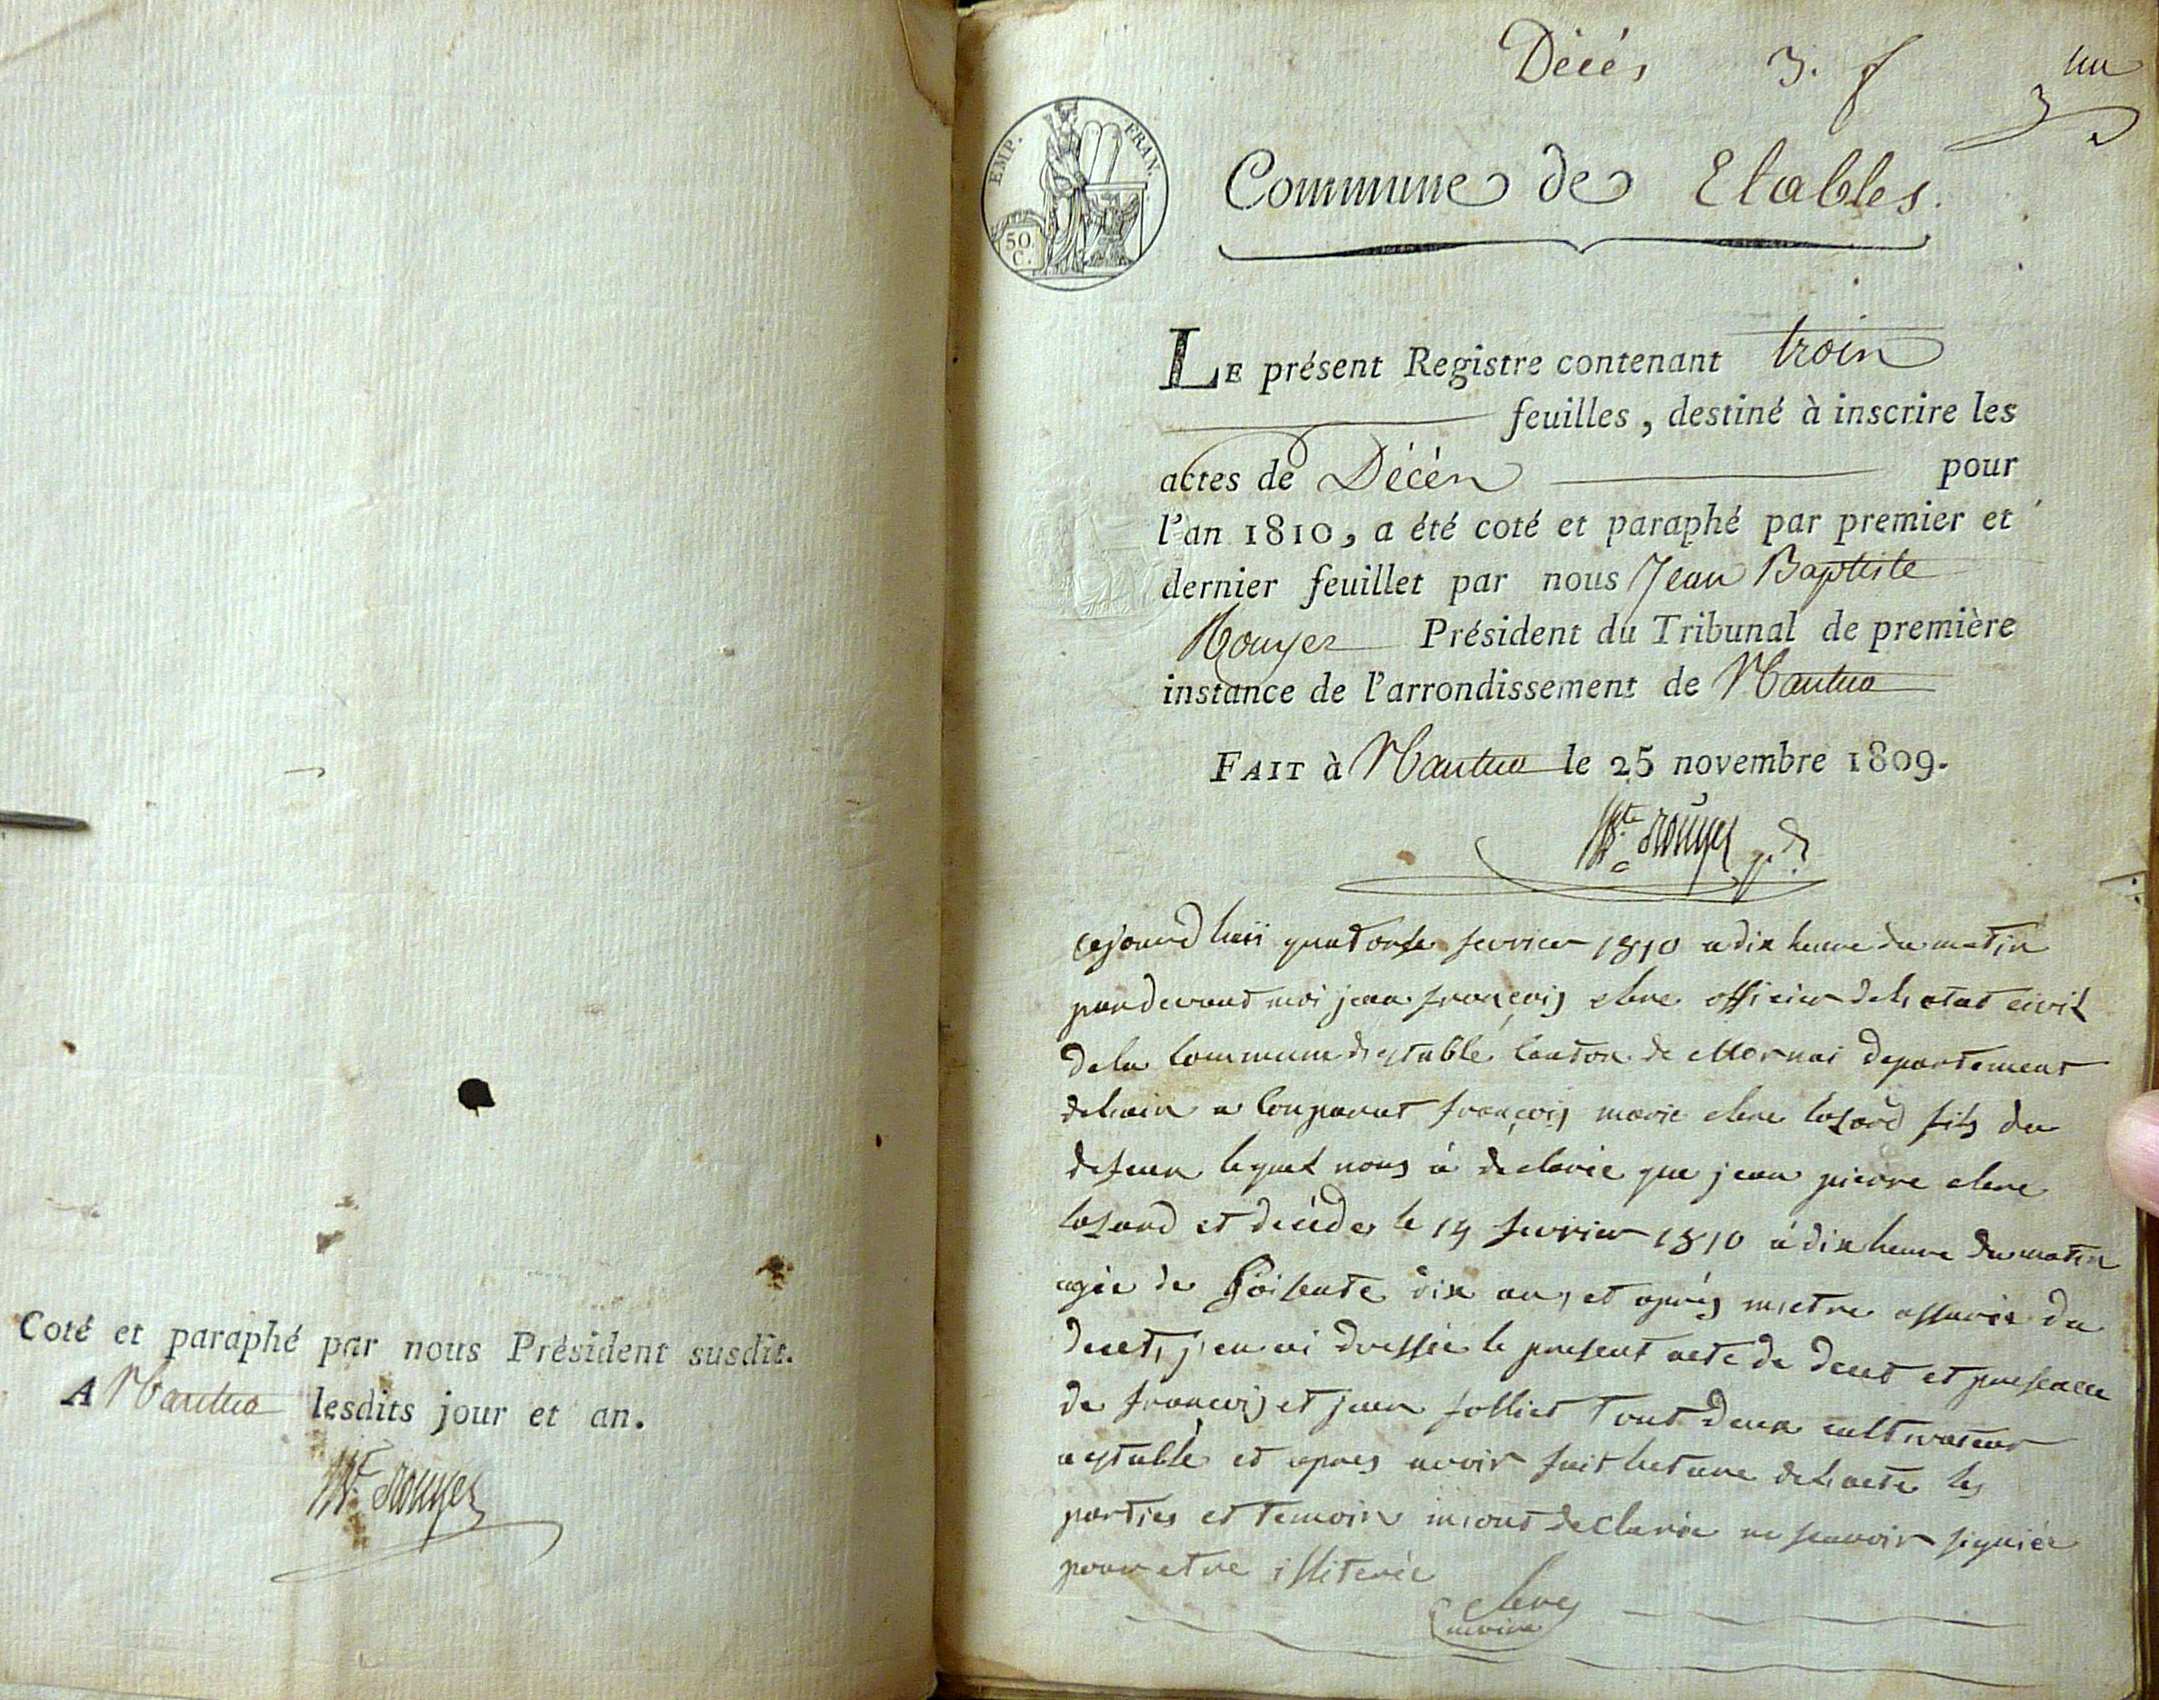 Coté et paraphé par nous Président susdit.
A Nantua lesdits jour et an.
Bte Rouyer
Décés 3. f
un
EMP. FRAN.
50
C.
Commune de Etables.
LE présent Registre contenant trois
feuilles, destiné à inscrire les
actes de Décés pour
l'an 1810, a été coté et paraphé par premier et
dernier feuillet par nous Jean Baptiste
Rouyer Président du Tribunal de première
instance de l'arrondissement de Nantua
FAIT à Nantua le 25 novembre 1809.
Bte Rouyer
cejourd huii quatorse fevrier 1810 a dix heure du matin
pardevant moi jean françois clere officier de letat civil
dela commune destable canton de Mornai departement
de lain a comparut françois marie clere lasard fils du
defeun lequel nous à déclarée que jean pierre clere
lasard et décédes le 14 fevrier 1810 à dix heure du matin
agée de soisente dix an, et après metre assurée du
decet, j'en ai dressée le present acte de decet et presence
de francois et jean folliet tout deux cultivateur
a estable et apres avoir fait lecture de lacte les
parties et temoin mont declarée ne scavoir signiée
pour etre illiterée
clere
maire